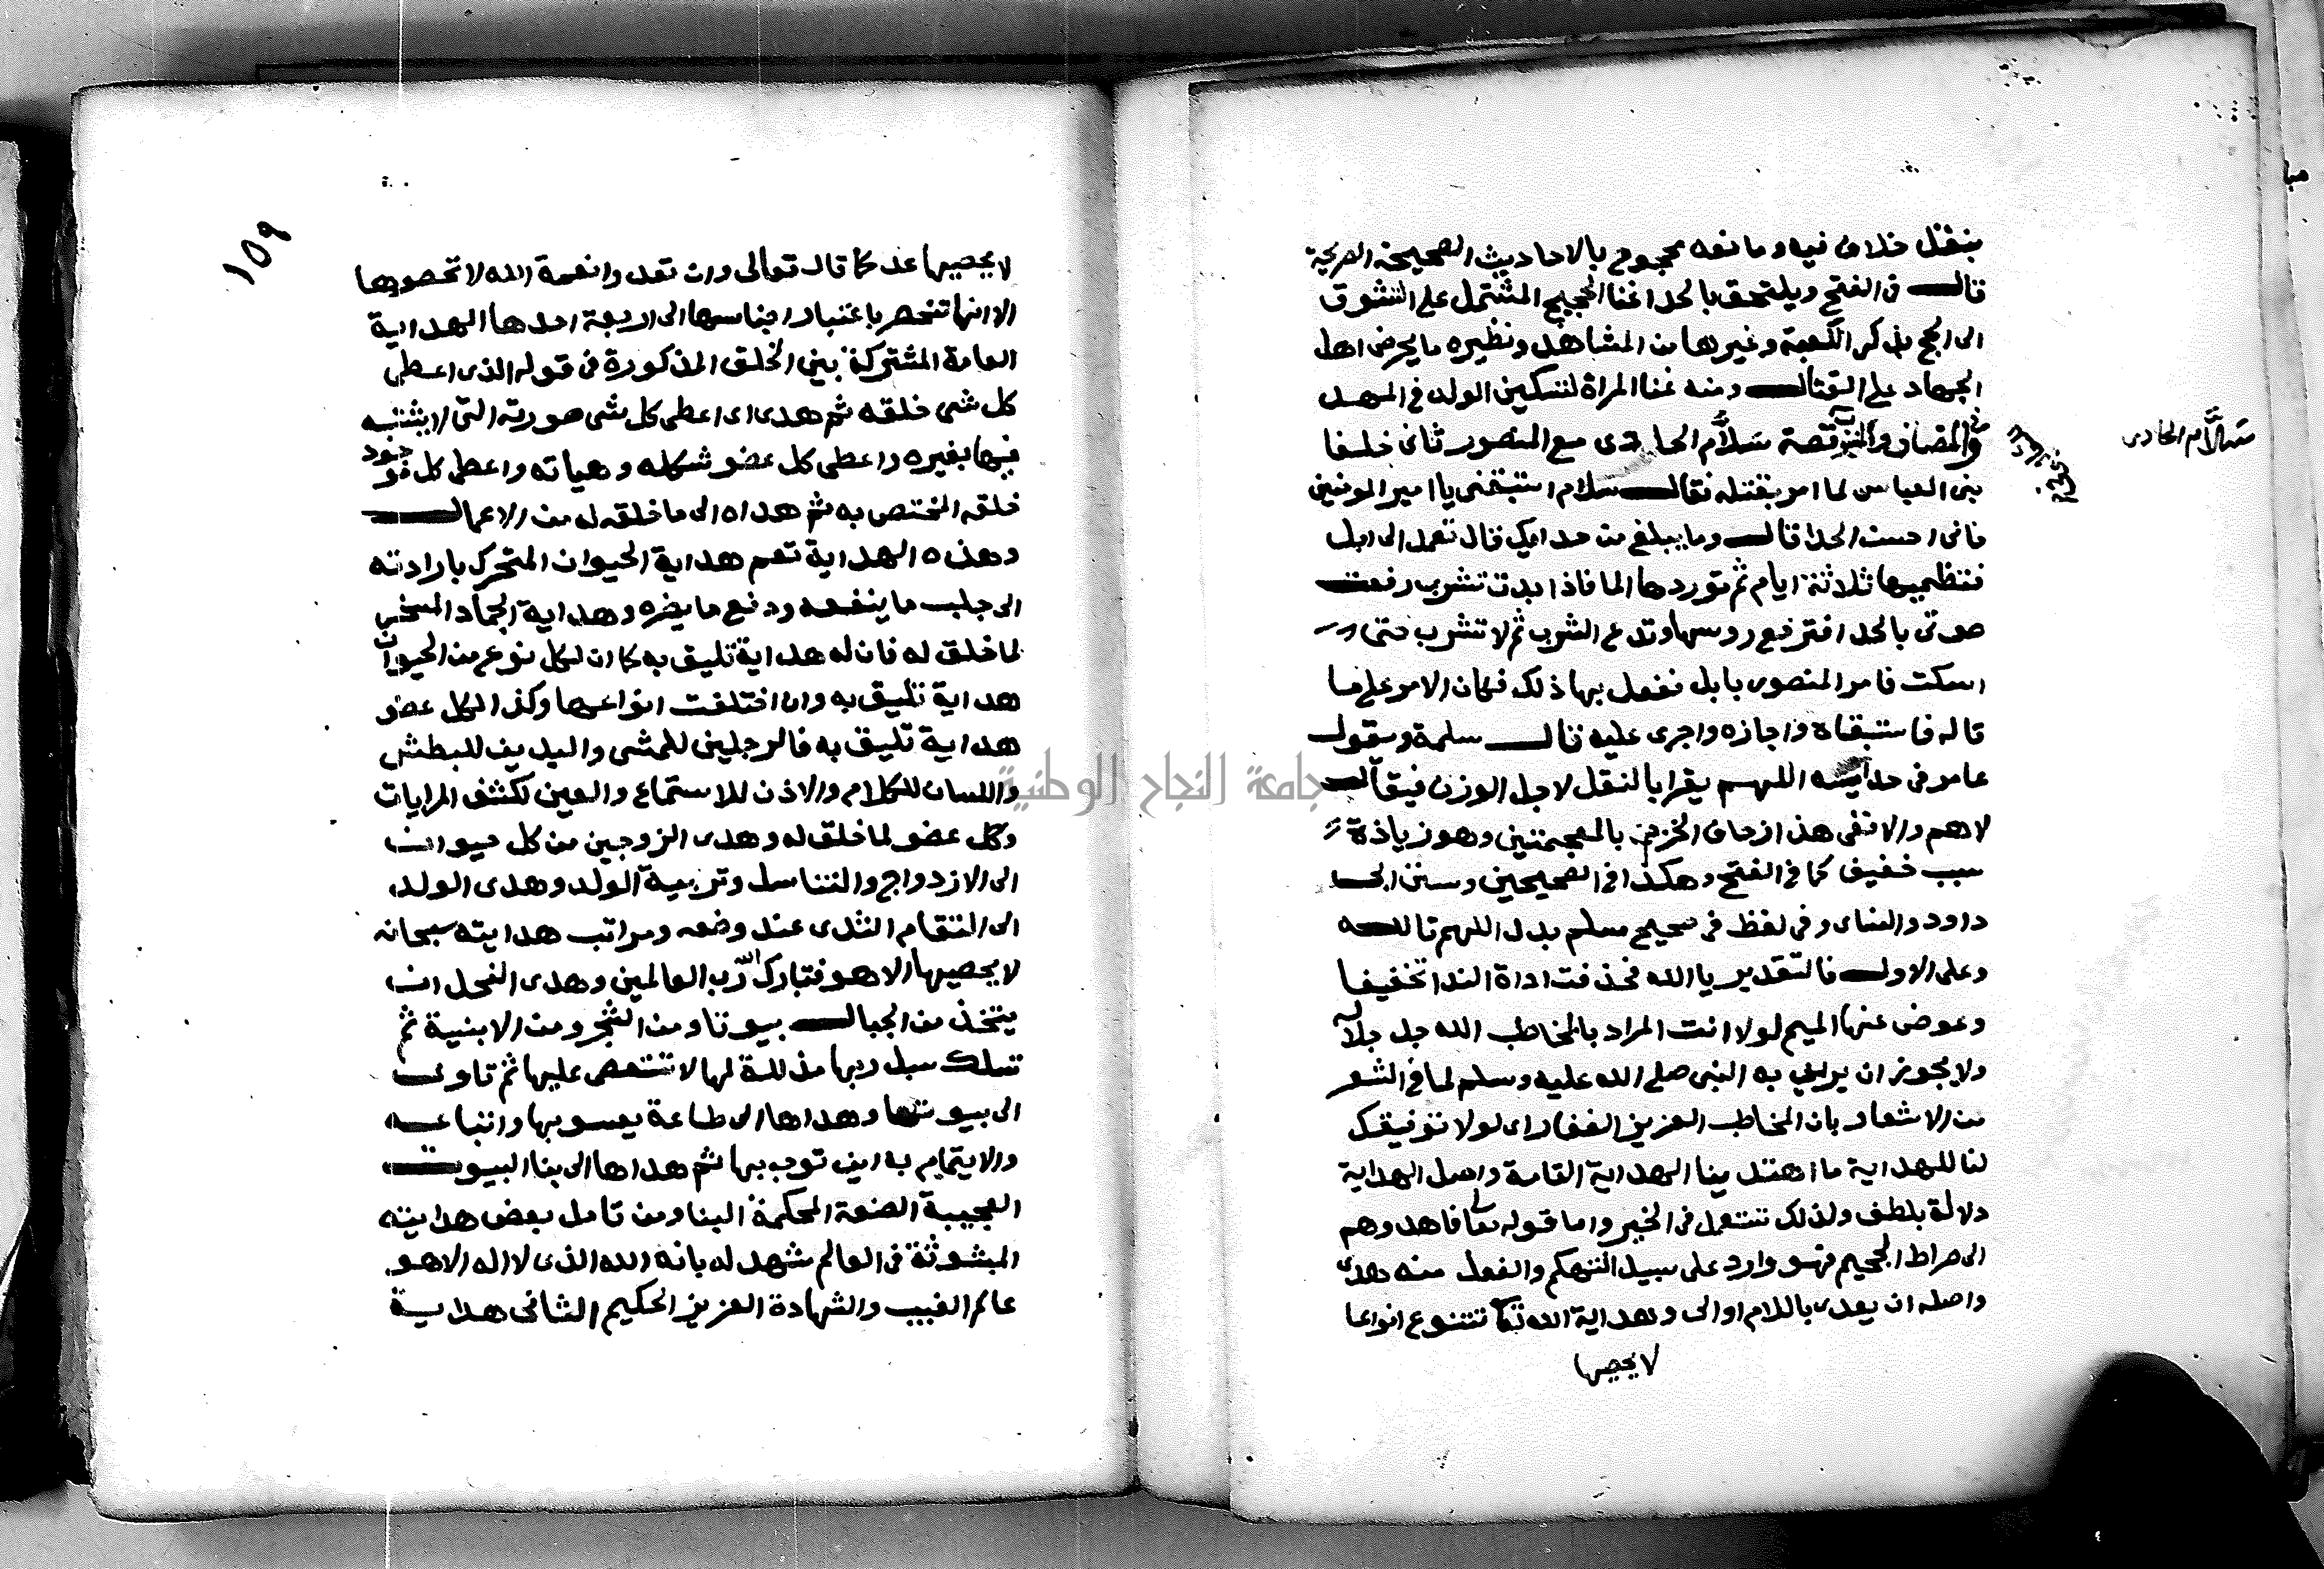 بنقل خلاف فيه ومانعه محجوج بالاحاديث الصحيحة الصريحة
قال في الفتح ويلتحق بالحدا غنا الحجيج المشتمل على التشوق
الى الحج بذكر الكعبة وغيرها من المشاهد ونظيره ما يحرض اهل
الجهاد على القتال ومنه غنا المراة لتسكين الولد في المهد
سلام الحادى
قصة سلام الحادى مع المنصور ثانى خلفا
بنى العباس لما امر بقتله فقال سلام استبقنى يا امير المومنين
فانى احسن الحدا قال وما يبلغ من حدايك قال تعمد الى ابل
فتظميها ثلاثة ايام ثم توردها الما فاذا بدت تشرب رفعت
صوتى بالحدا فترفع روسها وتدع الشرب ثم لا تشرب حتى
اسكت فامر المنصور بابل ففعل بها ذلك فكان الامر على ما
قاله فاستبقاه واجازه واجرى عليه قال سلمة ويقول
عامر فى حدايسه اللهم يقرا بالنقل لاجل الوزن فيقال
لاهم والا ففى هذا زحاف الخزم بالمعجمتين وهو زيادة
سبب خفيف كما فى الفتح وهكذا فى الصحيحين وسنن ابى
داود والنساى وفى لفظ فى صحيح مسلم بدل اللهم تالله
وعلى الاول فالتقدير يا الله فحذفت اداة الندا تخفيفا
وعوض عنها الميم لولا انت المراد بالمخاطب الله جل جلاله
ولا يجوز ان يراد به النبى صلى الله عليه وسلم لما فى الشعر
من الاشعار بان المخاطب العزيز الغفار اى لولا توفيقك
لنا للهداية ما اهتدينا الهداية التامة واصل الهداية
دلالة بلطف ولذلك تستعمل فى الخير واما قوله تعالى فاهدوهم
الى صراط الجحيم فهو وارد على سبيل التهكم والفعل منه هدى
واصله ان يعدى باللام او الى وهداية الله تعالى تتنوع انواعا
لا يحصيها
١٥٩
لا يحصيها عد كما قال تعالى وان تعدوا نعمة الله لا تحصوها
الا انها تنحصر باعتبار اجناسها الى اربعة احدها الهداية
العامة المشتركة بين الخلق المذكورة فى قوله الذى اعطى
كل شى خلقه ثم هدى اى اعطى كل شى صورته التى لا يشتبه
فيها بغيره واعطى كل عضو شكله وهياته واعطى كل موجود
خلقه المختص به ثم هداه الى ما خلقه له من الاعمال
وهذه الهداية تعم هداية الحيوان المتحرك بارادته
الى جلب ما ينفعه ودفع ما يضره وهداية الجماد المسخر
لما خلق له فان له هداية تليق به كما ان لكل نوع من الحيوان
هداية تليق به وان اختلفت انواعها وكذا لكل عضو
هداية تليق به فالرجلين للمشى واليدين للبطش
واللسان للكلام والاذن للاستماع والعين لكشف المرايات
وكل عضو لما خلق له وهدى الزوجين من كل حيوان
الى الازدواج والتناسل وتربية الولد وهدى الولد
الى التقام الثدى عند وضعه ومراتب هدايته سبحانه
لا يحصيها الا هو فتبارك الله رب العالمين وهدى النحل ان
يتخذ من الجبال بيوتا ومن الشجر ومن الابنية ثم
تسلك سبل ربها مذللة لها لا تتعصى عليها ثم تاوى
الى بيوتها وهداها الى طاعة يعسوبها واتباعه
والايتمام به اين توجه بها ثم هداها الى بنا البيوت
العجيبة الصنعة المحكمة البنا ومن تامل بعض هدايته
المبثوثة فى العالم شهد له بانه الله الذى لا اله الا هو
عالم الغيب والشهادة العزيز الحكيم الثانى هداية
جامعة النجاح الوطنية